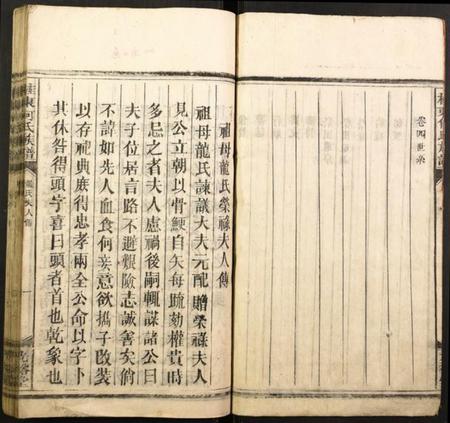 卷四世系
祖母龍氏榮祿夫人傳
祖母龍氏諫議大夫元配贈榮祿夫人
見公立朝以骨鯁自矢每疏劾權貴時
多忌之者夫人慮禍後嗣輒謀諸公曰
夫子位居言路不避艱險志誠善矣倘
不諱如先人血食何妾意欲攜子改裝
以存祀典庶得忠孝兩全公命以字卜
其休咎得頭字喜曰頭者首也乾象也
桂東何氏族譜
龍氏夫人傳
一